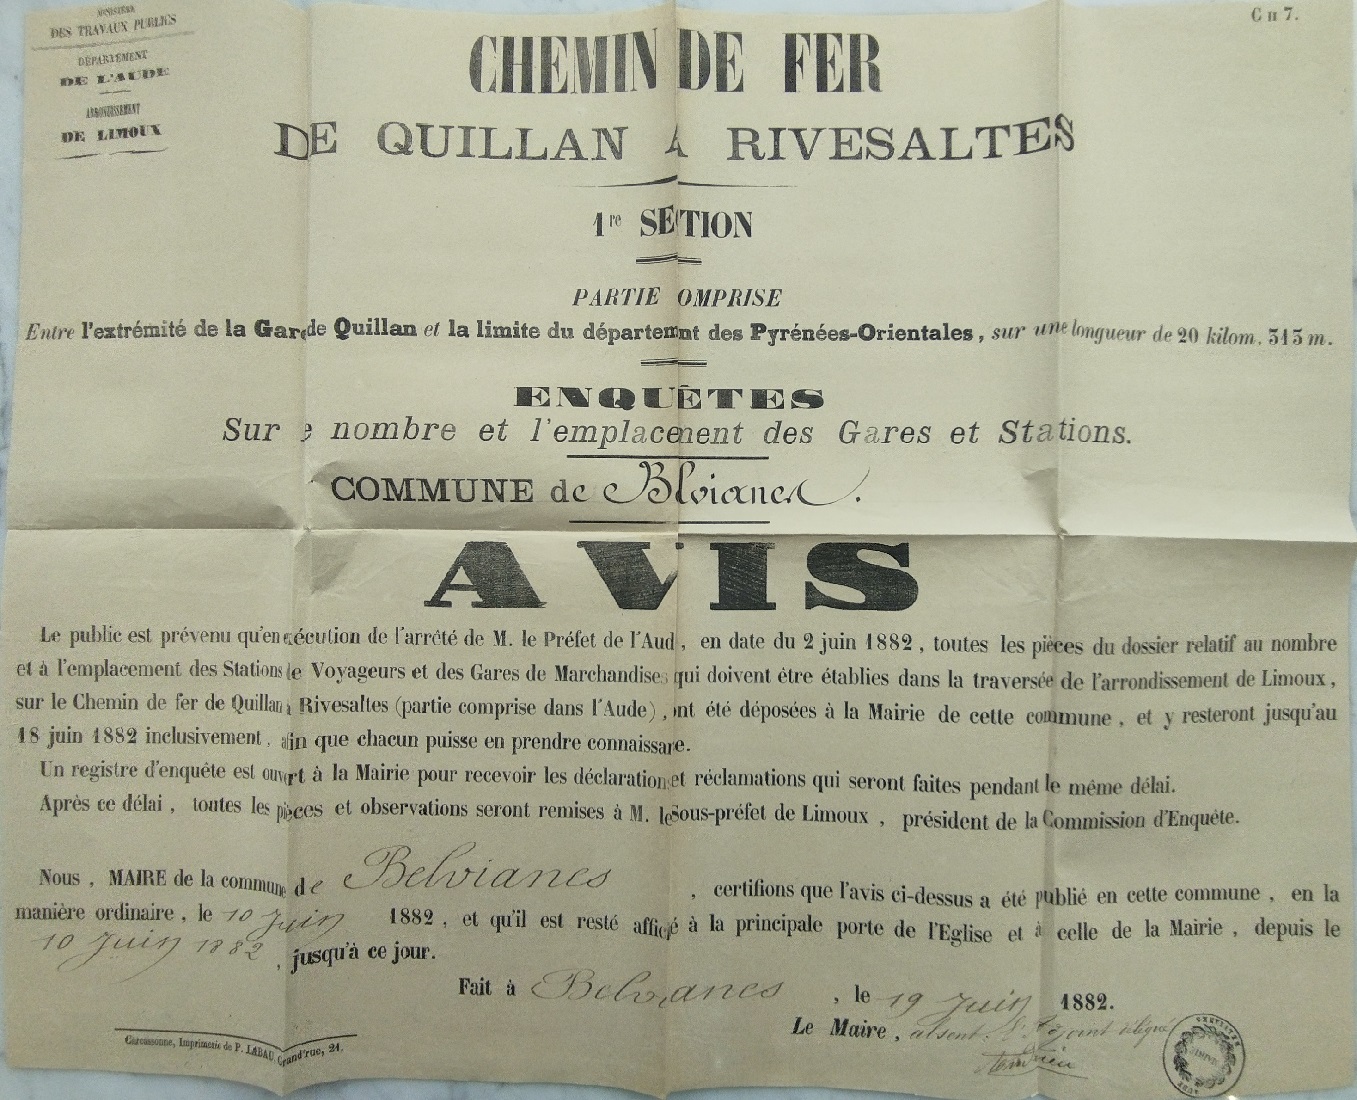 MINISTÈRE
DES TRAVAUX PUBLICS
DÉPARTEMENT
DE L'AUDE
ARRONDISSEMENT
DE LIMOUX
C n 7.
CHEMIN DE FER
DE QUILLAN A RIVESALTES
1re SECTION
PARTIE OMPRISE
Entre l'extrémité de la Gare de Quillan et la limite du départemnt des Pyrénées-Orientales, sur une longueur de 20 kilom. 313 m.
ENQUÊTES
Sur e nombre et l'emplacement des Gares et Stations.
COMMUNE de Blvianes.
AVIS
Le public est prévenu qu'en exécution de l'arrêté de M. le Préfet de l'Aud, en date du 2 juin 1882, toutes les pièces du dossier relatif au nombre
et à l'emplacement des Stations de Voyageurs et des Gares de Marchandises qui doivent être établies dans la traversée de l'arrondissement de Limoux,
sur le Chemin de fer de Quillan à Rivesaltes (partie comprise dans l'Aude), ont été déposées à la Mairie de cette commune, et y resteront jusqu'au
18 juin 1882 inclusivement, afin que chacun puisse en prendre connaissance.
Un registre d'enquête est ouvert à la Mairie pour recevoir les déclarations et réclamations qui seront faites pendant le même délai.
Après ce délai, toutes les pièces et observations seront remises à M. le Sous-préfet de Limoux, président de la Commission d'Enquête.
Nous, MAIRE de la commune de Belvianes, certifions que l'avis ci-dessus a été publié en cette commune, en la
manière ordinaire, le 10 Juin 1882, et qu'il est resté affiché à la principale porte de l'Eglise et à celle de la Mairie, depuis le
10 Juin 1882, jusqu'à ce jour.
Fait à Belvianes, le 19 Juin 1882.
Le Maire, absent. L'adjoint délégué
Carcassonne, Imprimerie de P. LABAU, Grand'rue, 21.